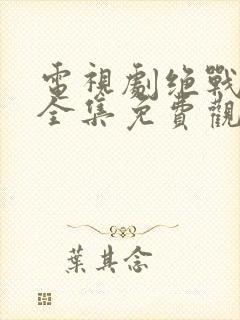 電視劇绝戰
全集免費觀
葉其念